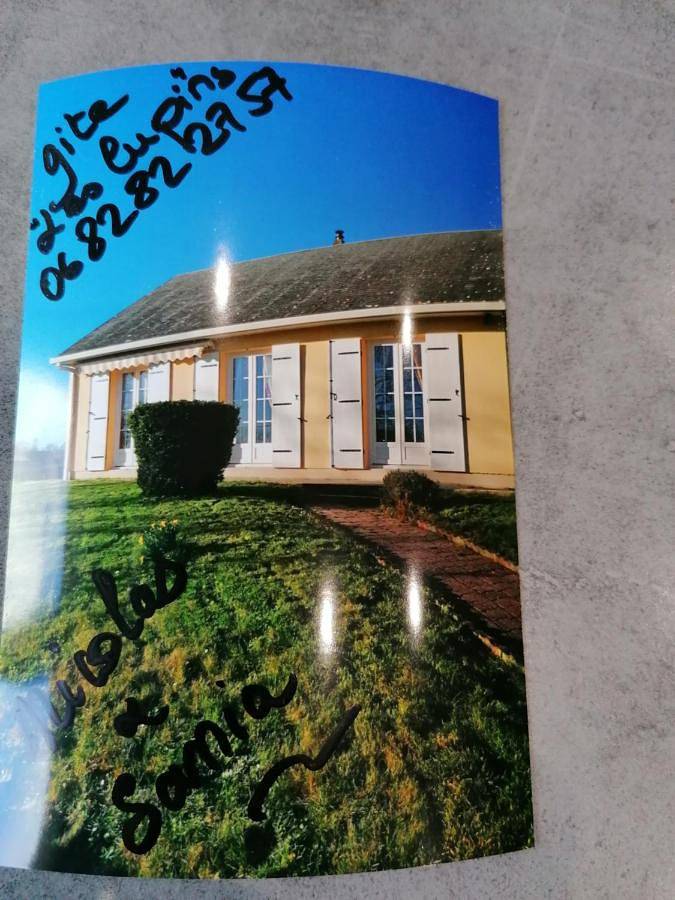 gite
"Les Lupins"
06 82 82 27 57
Nicolas
&
Samia